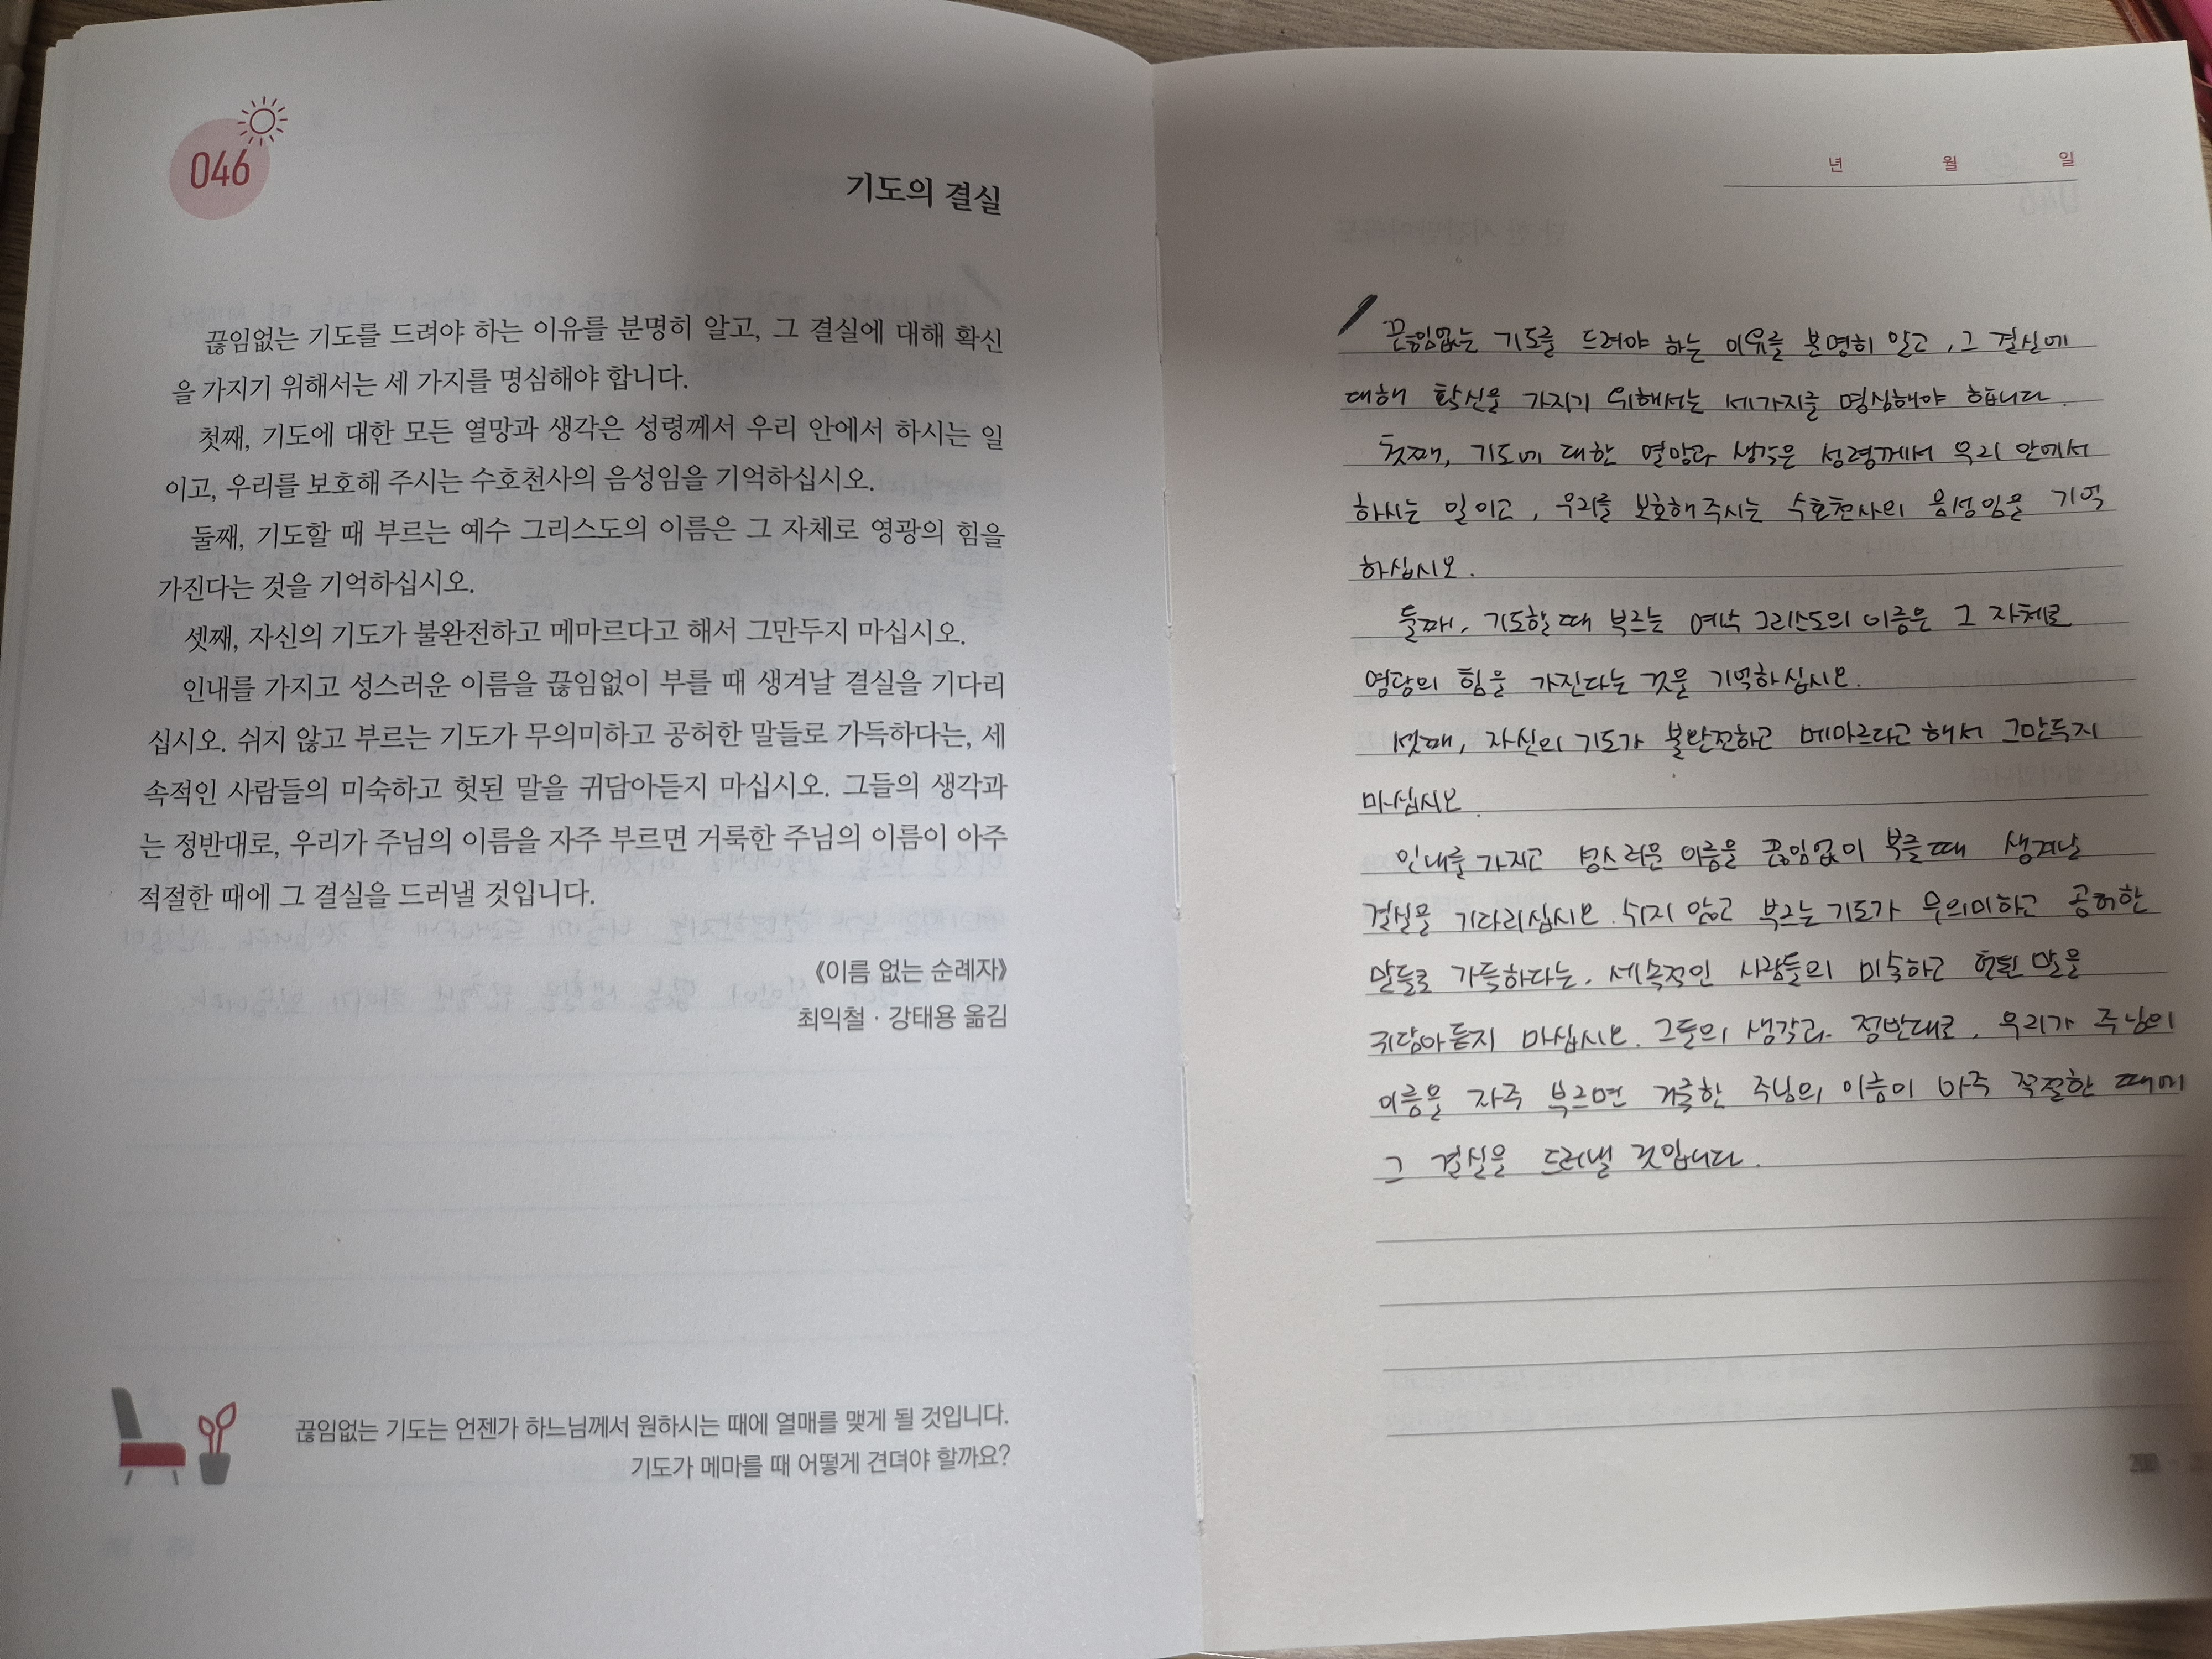 046
기도의 결실
끊임없는 기도를 드려야 하는 이유를 분명히 알고, 그 결실에 대해 확신
을 가지기 위해서는 세 가지를 명심해야 합니다.
첫째, 기도에 대한 모든 열망과 생각은 성령께서 우리 안에서 하시는 일
이고, 우리를 보호해 주시는 수호천사의 음성임을 기억하십시오.
둘째, 기도할 때 부르는 예수 그리스도의 이름은 그 자체로 영광의 힘을
가진다는 것을 기억하십시오.
셋째, 자신의 기도가 불완전하고 메마르다고 해서 그만두지 마십시오.
인내를 가지고 성스러운 이름을 끊임없이 부를 때 생겨날 결실을 기다리
십시오. 쉬지 않고 부르는 기도가 무의미하고 공허한 말들로 가득하다는, 세
속적인 사람들의 미숙하고 헛된 말을 귀담아듣지 마십시오. 그들의 생각과
는 정반대로, 우리가 주님의 이름을 자주 부르면 거룩한 주님의 이름이 아주
적절한 때에 그 결실을 드러낼 것입니다.
《이름 없는 순례자》
최익철 · 강태용 옮김
끊임없는 기도는 언젠가 하느님께서 원하시는 때에 열매를 맺게 될 것입니다.
기도가 메마를 때 어떻게 견뎌야 할까요?
년 월 일
끈임없는 기도를 드려야 하는 이유를 분명히 알고, 그 결실에
대해 확신을 가지기 위해서는 세가지를 명심해야 합니다.
첫째, 기도에 대한 열망과 생각은 성령께서 우리 안에서
하시는 일이고, 우리를 보호해주시는 수호천사의 음성임을 기억
하십시오.
둘째, 기도할때 부르는 예수 그리스도의 이름은 그 자체로
영광의 힘을 가진다는 것을 기억하십시오.
셋째, 자신의 기도가 불완전하고 메마르다고 해서 그만두지
마십시오.
인내를 가지고 성스러운 이름을 끊임없이 부를때 생겨날
결실을 기다리십시오. 쉬지 않고 부르는 기도가 무의미하고 공허한
말들로 가득하다는, 세속적인 사람들의 미숙하고 헛된 말을
귀담아 듣지 마십시오. 그들의 생각과 정반대로, 우리가 주님의
이름을 자주 부르면 거룩한 주님의 이름이 아주 적절한 때에
그 결실을 드러낼 것입니다.